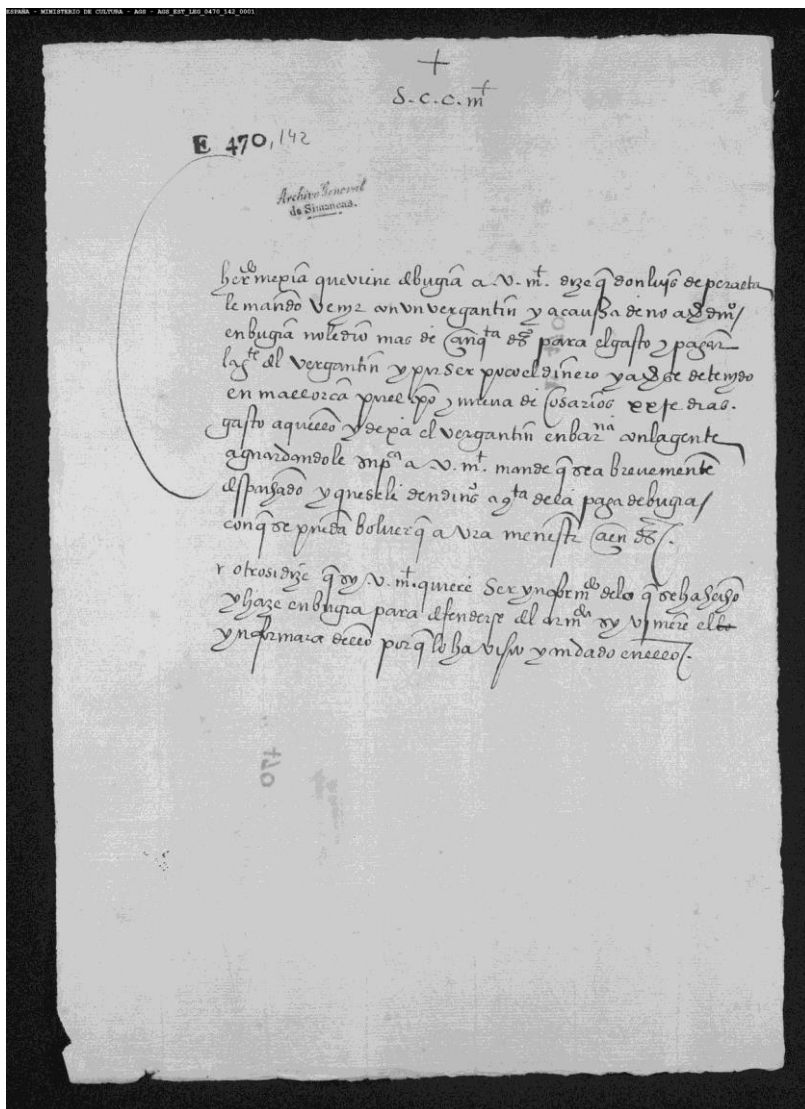 ESPAÑA - MINISTERIO DE CULTURA - AGS - AGS_EST_LEG_0470_142_0001
+
S. c. c. mt
E 470, 142
Archivo General
de Simancas.
herdo mexia que viene de bugia a .v. mt. dize q don luys de peralta
le mando venyr con un vergantin y a caussa de no
en bugia no le dio mas de cinqta ds para el gasto y pagar
la gte del vergantin y por ser poco el dinero y detenydo
en mallorca por el tpo y nueva de cosarios dias.
gasto aquello y dexa el vergantin en barna con la gente
aguardandole a v. mt. mande q sea brevemente
despachado y que se le den dinos a qta de la paga de bugia
con q se pueda bolver q a vra menestr cien ds.
otrosi dize q sy .v. mt. quiere ser ynformdo de lo q se ha hecho
y haze en bugia para defenderse del armda sy viniere el
ynformara dello porq lo ha visto y andado en ello.
470